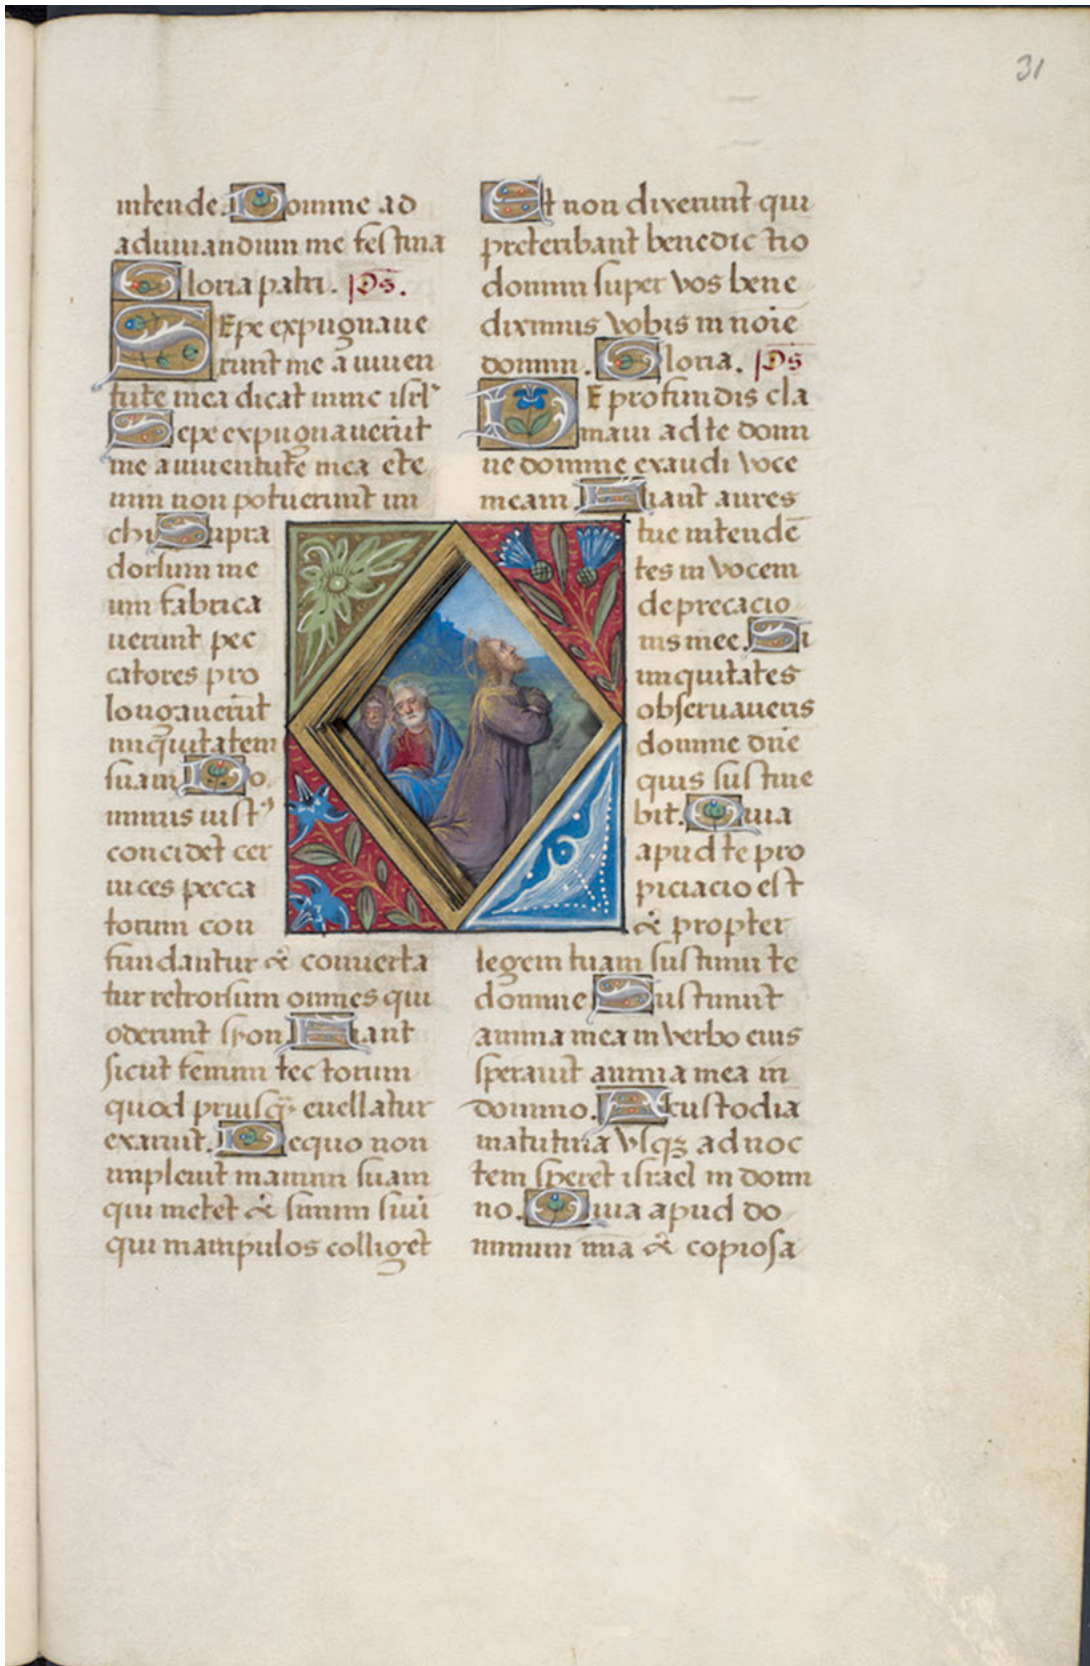 31
intende. Domine ad
adiuuandum me festina
Gloria patri. ps̄.
SEpe expugnaue
runt me a iuuen
tute mea dicat nunc isrl᷒
Sepe expugnauerūt
me a iuuentute mea ete
nim non potuerunt mi
chi Supra
dorsum me
um fabrica
uerunt pec
catores pro
longauerūt
iniquitatem
suam Do
minus iust᷒
concidet cer
uices pecca
torum con
fundantur & conuerta
tur retrorsum omnes qui
oderunt syon Fiant
sicut fenum tectorum
quod priusq̄ euellatur
exaruit. De quo non
impleuit manum suam
qui metet & sinum suū
qui manipulos colliget
Et non dixerunt qui
preteribant benedictio
domini super vos bene
diximus vobis in noīe
domini. Gloria. ps̄
DE profundis cla
maui ad te domi
ne domine exaudi voce
meam Fiant aures
tue intendē
tes in vocem
deprecacio
nis mee. Si
iniquitates
obseruaueris
domine dn̄e
quis sustine
bit. Quia
apud te pro
piciacio est
& propter
legem tuam sustinui te
domine Sustinuit
anima mea in verbo eius
sperauit anima mea in
domino. A custodia
matutina vsqꝫ ad noc
tem speret israel in domi
no. Quia apud do
minum mīa & copiosa